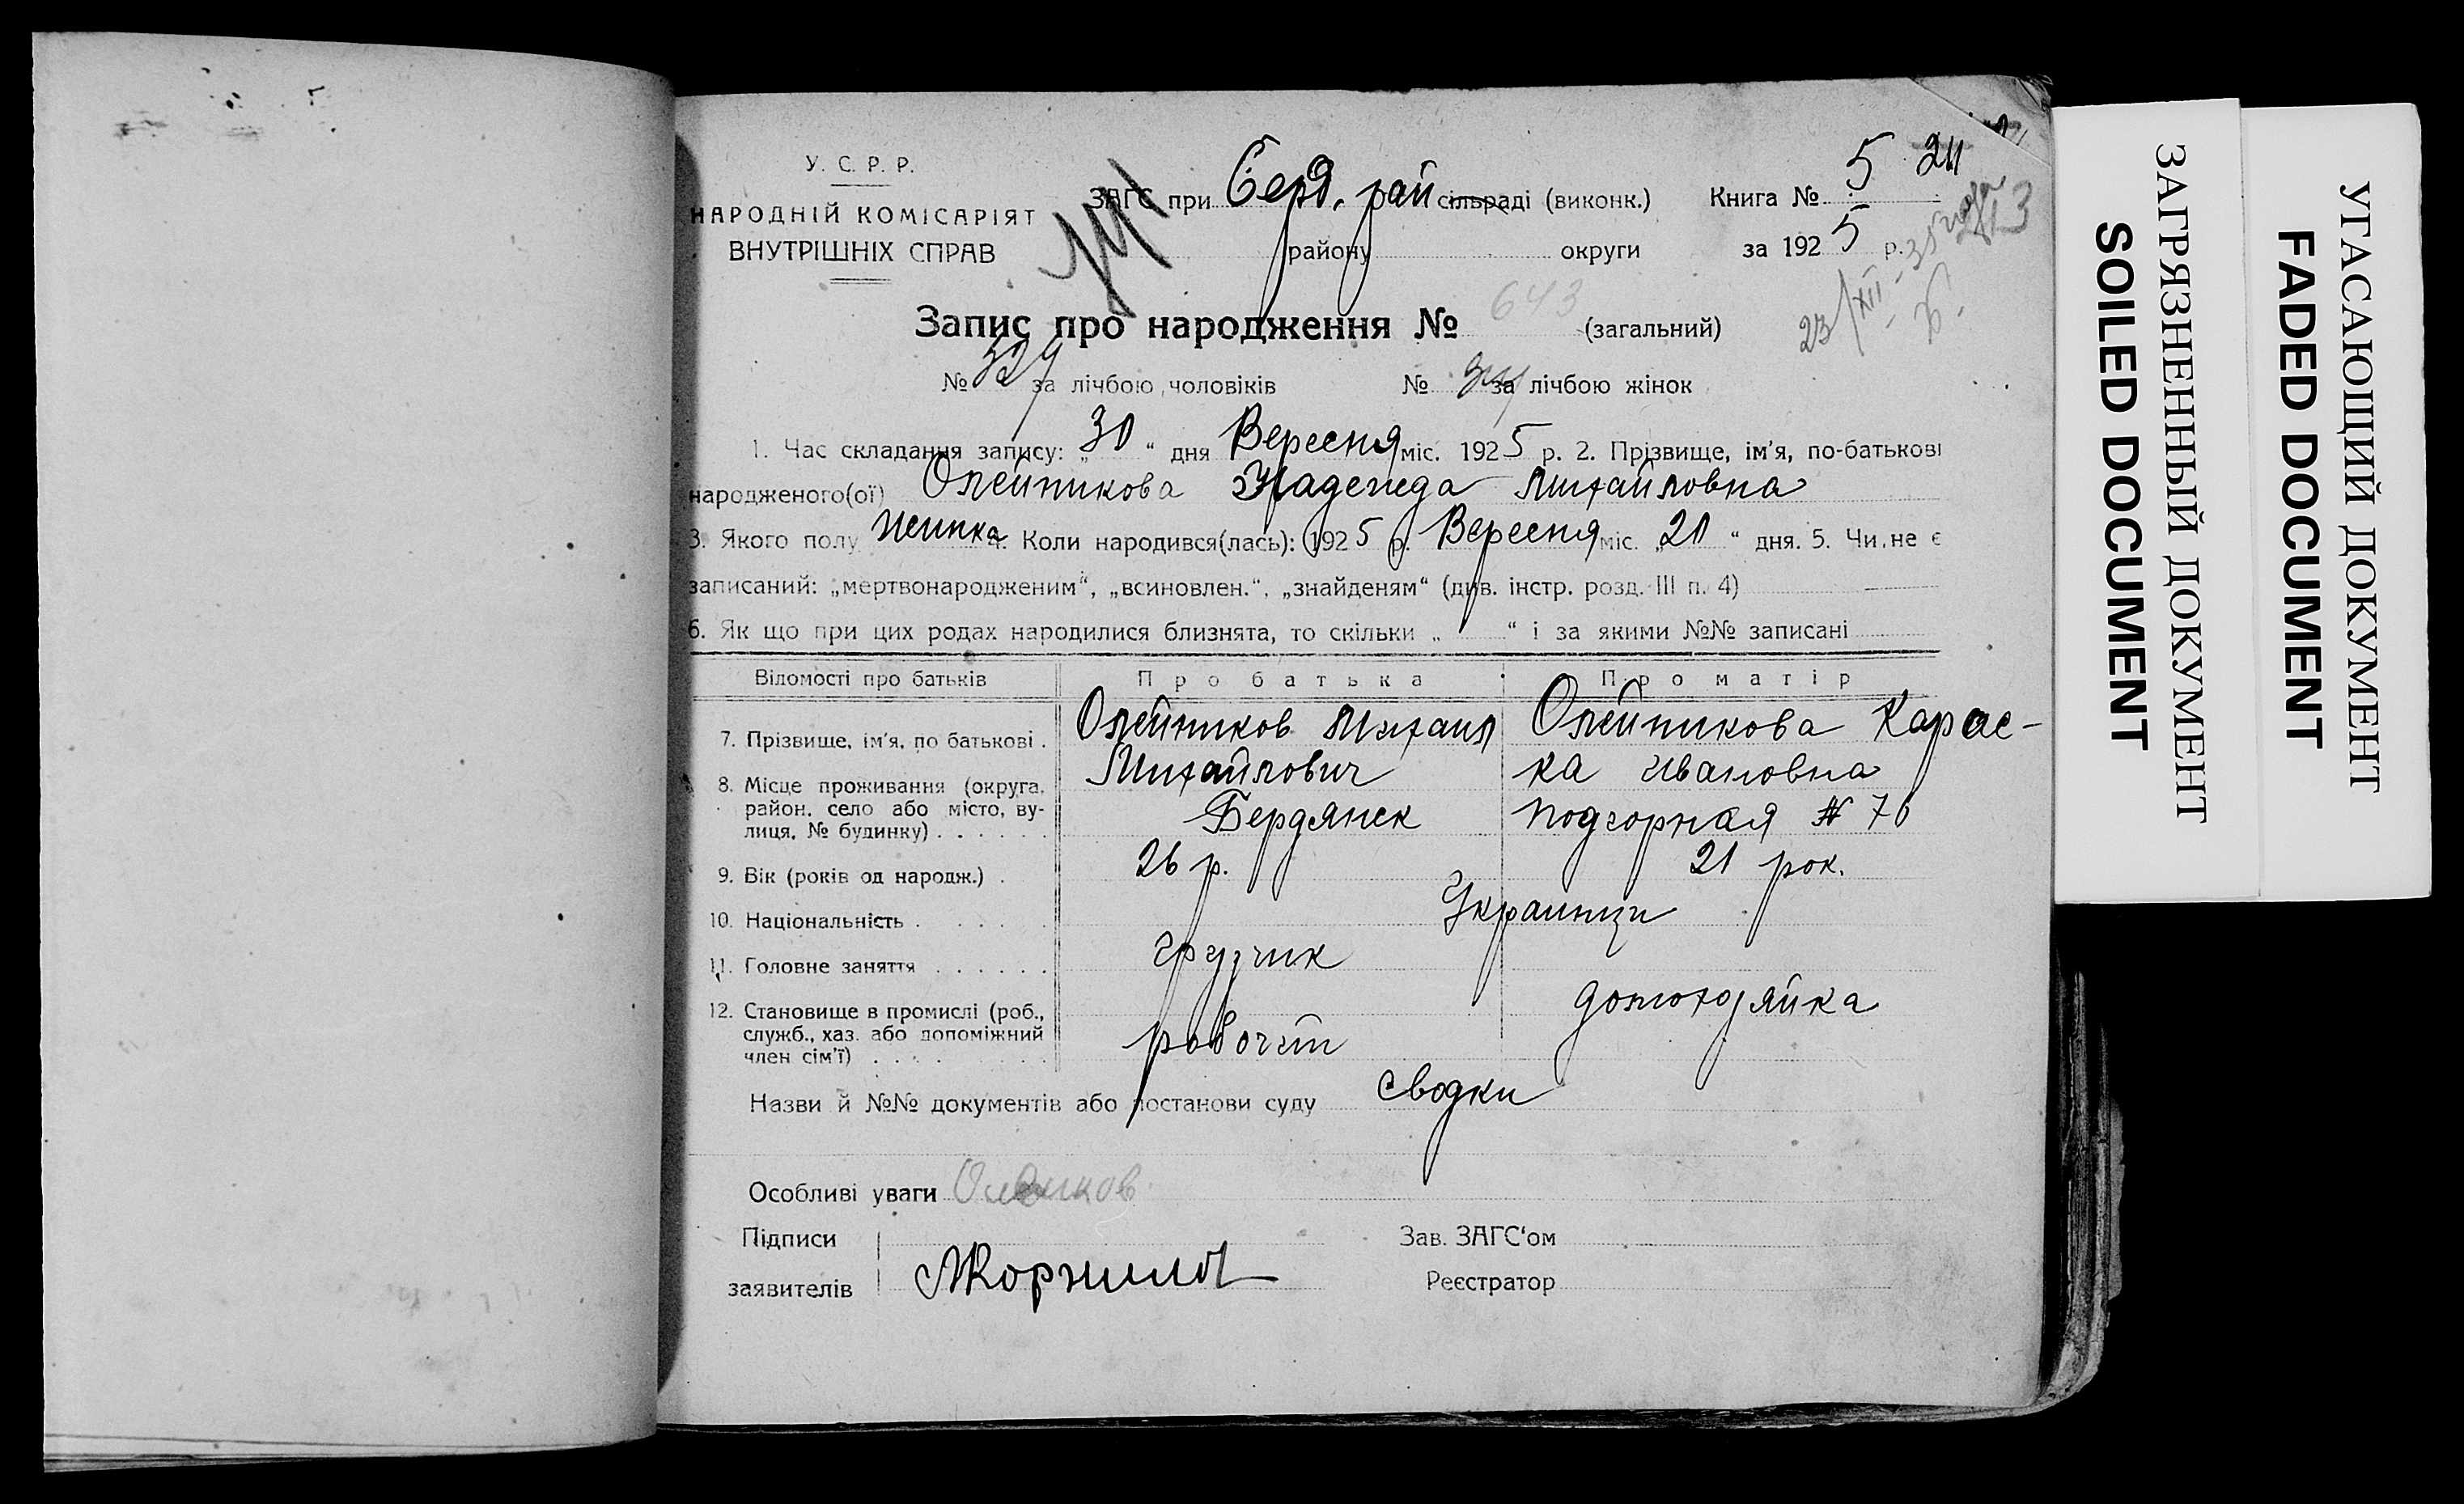 У. С. Р. Р.
НАРОДНІЙ КОМІСАРІЯТ
ВНУТРІШНІХ СПРАВ
ЗАГС при Берд. рай сільраді (виконк.)
району округи
Книга № 5 211
за 1925 р.
23/XII-35 года
Запис про народження № 643 (загальний)
№ 329 за лічбою чоловіків № за лічбою жінок
1. Час складання запису: „30“ дня Вересня міс. 1925 р. 2. Прізвище, ім'я, по-батькові
народженого(ої) Олейникова Надежда Михайловна
3. Якого полу жинка 4. Коли народився(лась): 1925 р. Вересня міс. „20“ дня. 5. Чи не є
записаний: „мертвонародженим“, „всиновлен.“, „знайденям“ (див. інстр. розд. III п. 4) —
6. Як що при цих родах народилися близнята, то скільки „ “ і за якими №№ записані
Відомості про батьків Про батька Про матір
7. Прізвище, ім'я, по батькові . Олейников Михаил Михайлович Олейникова Карас-
ка Ивановна
8. Місце проживання (округа,
район, село або місто, ву-
лиця, № будинку) . . . . . . Бердянск Подгорная № 76
9. Вік (років од народж.) . 26 р. 21 рок.
10. Національність . . . . . Украинци
11. Головне заняття . . . . . . грузчик
12. Становище в промислі (роб.,
служб., хаз. або допоміжний
член сім'ї) . . . . рабочий домохозяйка
Назви й №№ документів або постанови суду Сводки
Особливі уваги
Підписи
заявителів
Зав. ЗАГС'ом
Реєстратор
ЗАГРЯЗНЕННЫЙ ДОКУМЕНТ
SOILED DOCUMENT
УГАСАЮЩИЙ ДОКУМЕНТ
FADED DOCUMENT